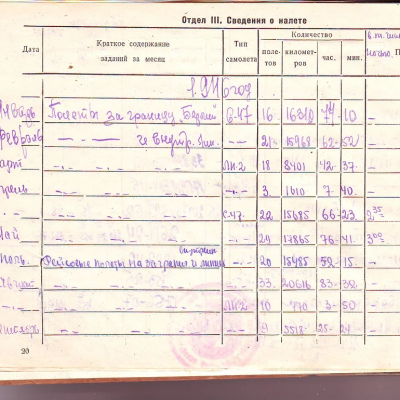 Отдел III. Сведения о налете
Дата Краткое содержание заданий за месяц Тип самолета Количество в т. числе ночью П
полетов километров час. мин.
1946 год
Январь Полеты за границу "Берлин" С-47 16 16310 77 10 –
Февраль –·–·– и внутр. 21 15968 62 52 –
Март –·– –·– ЛИ-2 18 8401 42 37 –
Апрель –·– –·– –·– 3 1610 7 40 –
–·– –·– –·– С-47 22 15685 66 23 2 35
Май –·– –·– –·– 29 17865 76 41 3 00
Июль Рейсовые полеты на заграничн. линии –·– 20 15485 52 15 –
Август –·– –·– –·– 33 20616 83 32 –
–·– –·– –·– ЛИ-2 10 770 3 50 –
–·– –·– –·– 9 3518 25 24 –
20